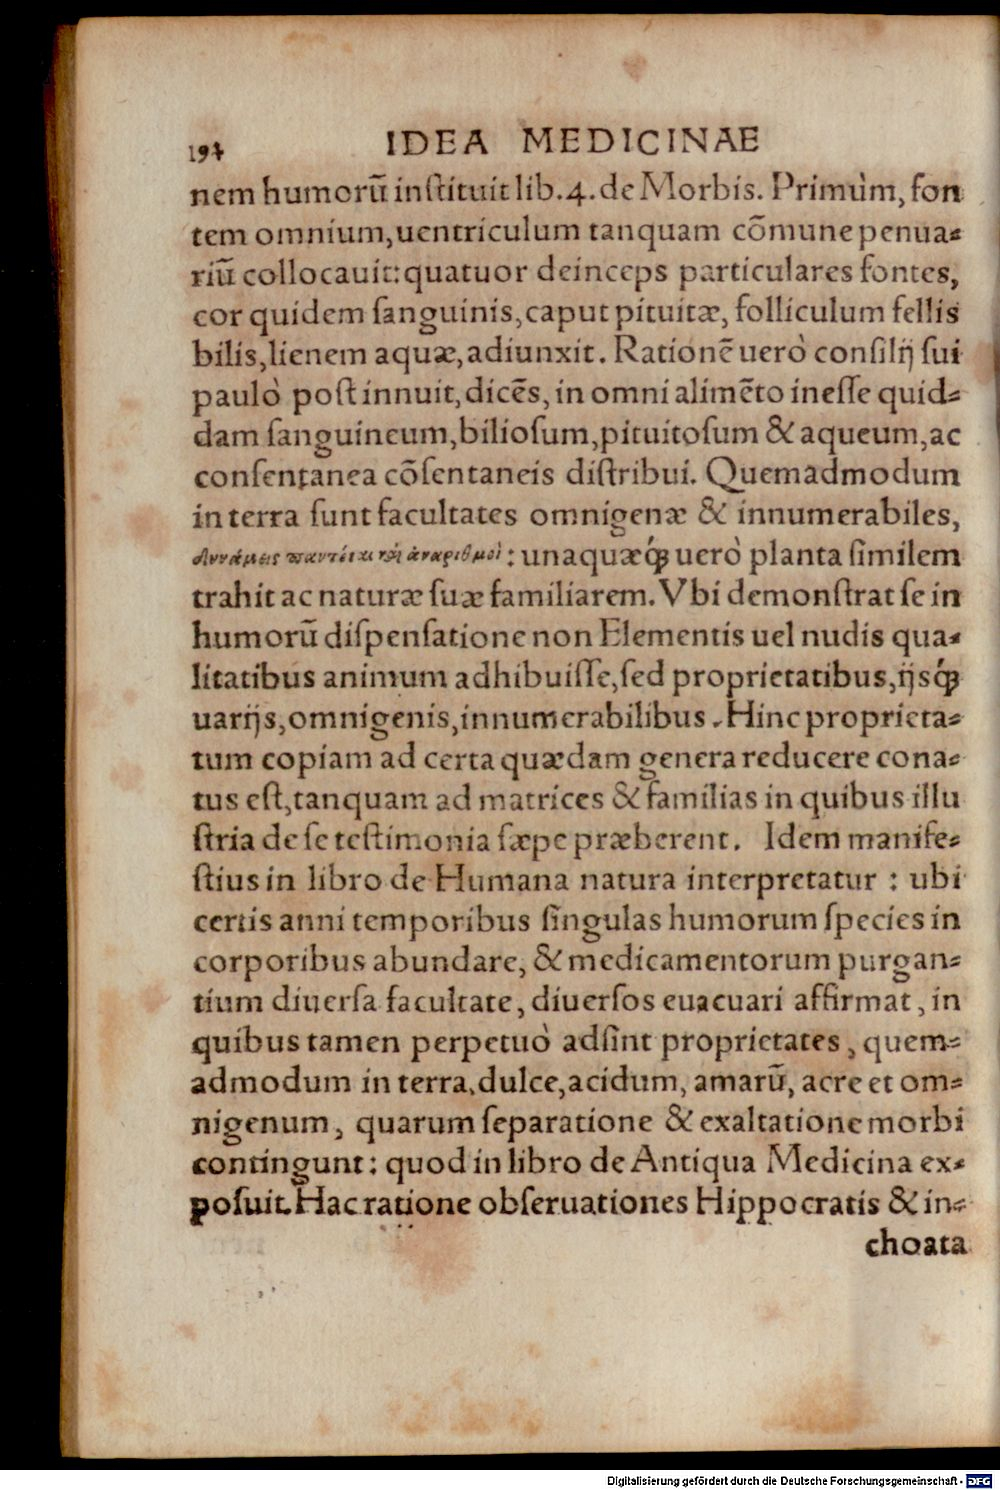 194 IDEA MEDICINAE
nem humorũ instituit lib. 4. de Morbis. Primùm, fon
tem omnium, uentriculum tanquam cõmune penua-
riũ collocauit: quatuor deinceps particulares fontes,
cor quidem sanguinis, caput pituitæ, folliculum fellis
bilis, lienem aquæ, adiunxit. Rationẽ uerò consilij sui
paulò post innuit, dicẽs, in omni alimẽto inesse quid-
dam sanguineum, biliosum, pituitosum & aqueum, ac
consentanea cõsentaneis distribui. Quemadmodum
in terra sunt facultates omnigenæ & innumerabiles,
δυνάμεις παντοῖαι καὶ ἀναριθμοὶ: unaquæq; uerò planta similem
trahit ac naturæ suæ familiarem. Vbi demonstrat se in
humorũ dispensatione non Elementis uel nudis qua-
litatibus animum adhibuisse, sed proprietatibus, ijsq;
uarijs, omnigenis, innumerabilibus. Hinc proprieta-
tum copiam ad certa quædam genera reducere cona-
tus est, tanquam ad matrices & familias in quibus illu
stria de se testimonia sæpe præberent. Idem manife-
stius in libro de Humana natura interpretatur: ubi
certis anni temporibus singulas humorum species in
corporibus abundare, & medicamentorum purgan-
tium diuersa facultate, diuersos euacuari affirmat, in
quibus tamen perpetuò adsint proprietates, quem-
admodum in terra, dulce, acidum, amarũ, acre et om-
nigenum, quarum separatione & exaltatione morbi
contingunt: quod in libro de Antiqua Medicina ex-
posuit. Hac ratione obseruationes Hippocratis & in-
choata
Digitalisierung gefördert durch die Deutsche Forschungsgemeinschaft - DFG